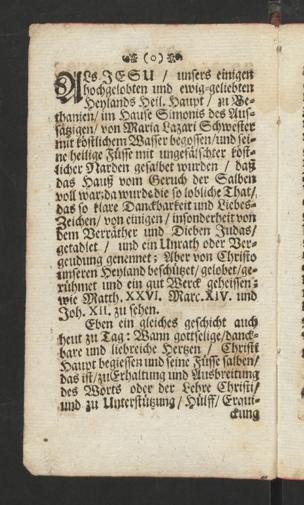 (o)
Als JESU / unsers einigen
hochgelobten und ewig-geliebten
Heylands Heil. Haupt / zu Be-
thanien / im Hause Simonis des Aus-
sätzigen / von Maria Lazari Schwester
mit köstlichem Wasser begossen / und sei-
ne heilige Füsse mit ungefälschter köst-
licher Narden gesalbet wurden / daß
das Hauß vom Geruch der Salben
voll war: da wurde die so lobliche That /
das so klare Danckbarkeit und Liebes-
Zeichen / von einigen / insonderheit von
dem Verräther und Dieben Judas /
getadlet / und ein Unrath oder Ver-
geudung genennet: Aber von Christo
unseren Heyland beschützet / gelobet / ge-
rühmet und ein gut Werck geheissen:
wie Matth. XXVI. Marc. XIV. und
Joh. XII. zu sehen.
Eben ein gleiches geschicht auch
heut zu Tag: Wann gottselige / danck-
bare und liebreiche Hertzen / Christi
Haupt begiessen und seine Füsse salben /
das ist / zu Erhaltung und Ausbreitung
des Worts oder der Lehre Christi /
und zu Unterstützung / Hülff / Erqui-
ckung